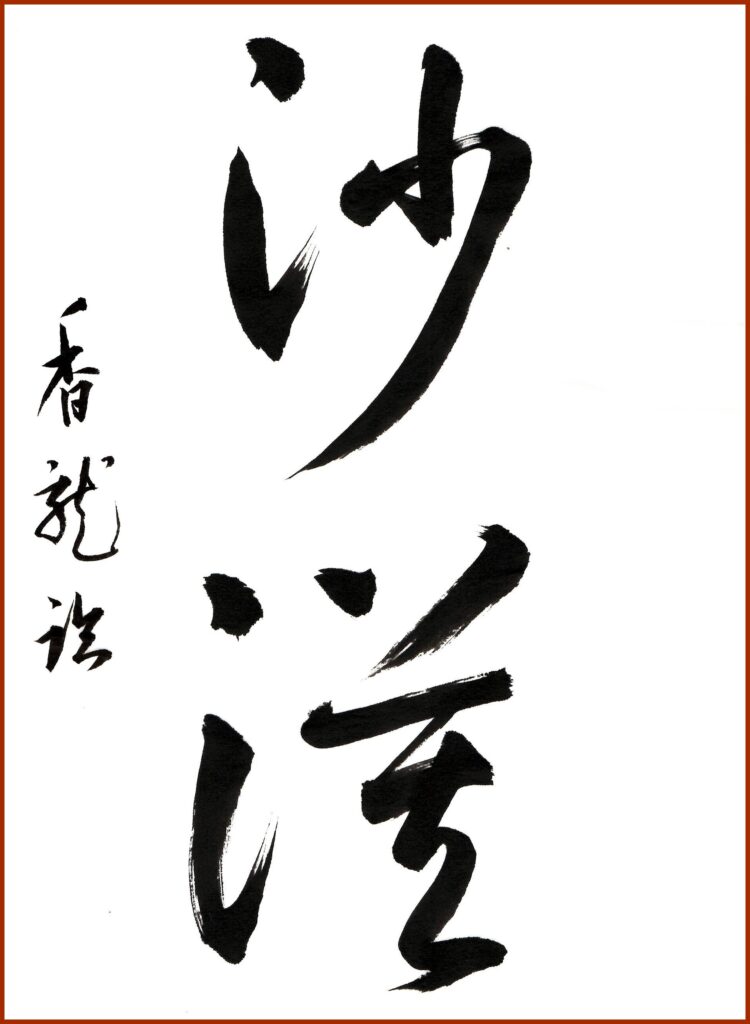 沙漠
香龍